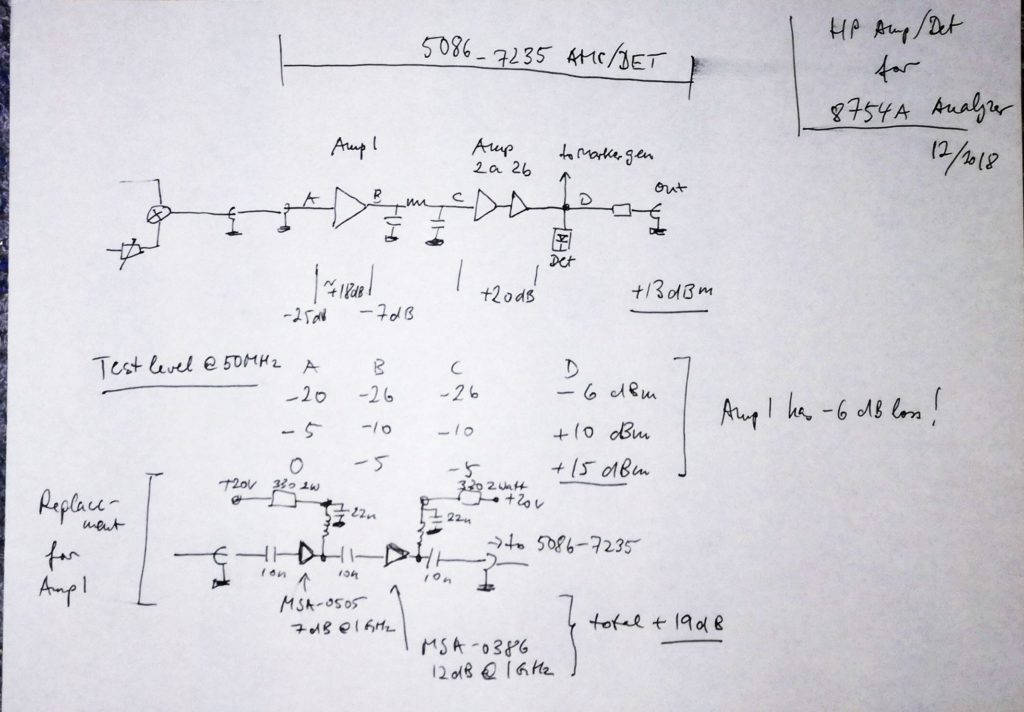 5086-7235 AMP/DET
HP Amp/Det
for
8754A Analyzer
12/2018
Amp 1
Amp
2a 2b
to Marker gen
A B C D
out
Det
~+18dB
-25dB -7dB
+20dB
+13dBm
Test level @ 50MHz A B C D
-20 -26 -26 -6 dBm
-5 -10 -10 +10 dBm
0 -5 -5 +15 dBm
Amp 1 has -6 dB loss!
Replace-
ment
for
Amp 1
+20V 330 2W 330 2Watt +20V
22n 22n
10n 10n 10n
→ to 5086-7235
MSA-0505
7dB @ 1GHz
MSA-0386
12dB @ 1GHz
total +19dB